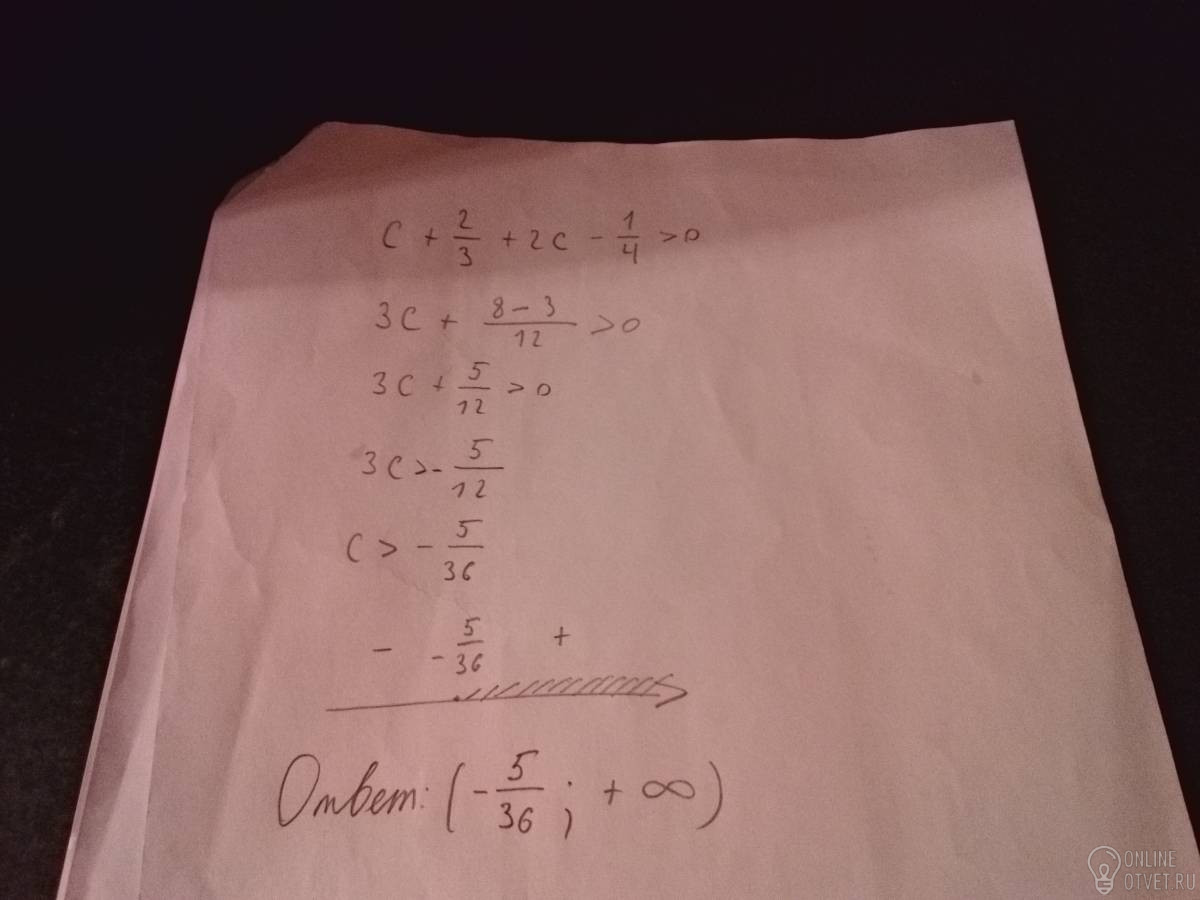 C + 2/3 + 2C - 1/4 > 0
3C + (8 - 3)/12 > 0
3C + 5/12 > 0
3C > - 5/12
C > - 5/36
- -5/36 +
Ответ: (- 5/36 ; + ∞)
ONLINE
OTVET.RU